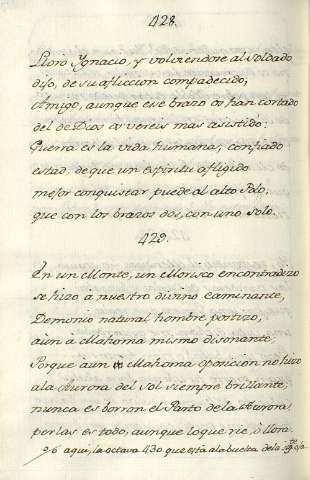 428.
Lloro Ygnacio, y volviendose al Soldado
dijo, de su afliccion compadecido,
Amigo, aunque ese brazo os han cortado
del de Dios os vereis mas asistido:
Guerra es la vida humana; confiado
estad, de que un espiritu afligido
mejor conquistar puede al alto Polo,
que con los brazos dos, con uno solo.
429.
En un Monte, un Morisco encontradizo
se hizo á nuestro divino caminante,
Demonio natural hombre postizo,
aun á Mahoma mismo disonante;
Porque aun Mahoma oposicion no hizo
ala Aurora del Sol siempre brillante;
nunca es borron el Parto de la Aurora;
perlas es todo, aunque lo que rie, ó llora.
aqui, la octava 430 que está ala buelta de la